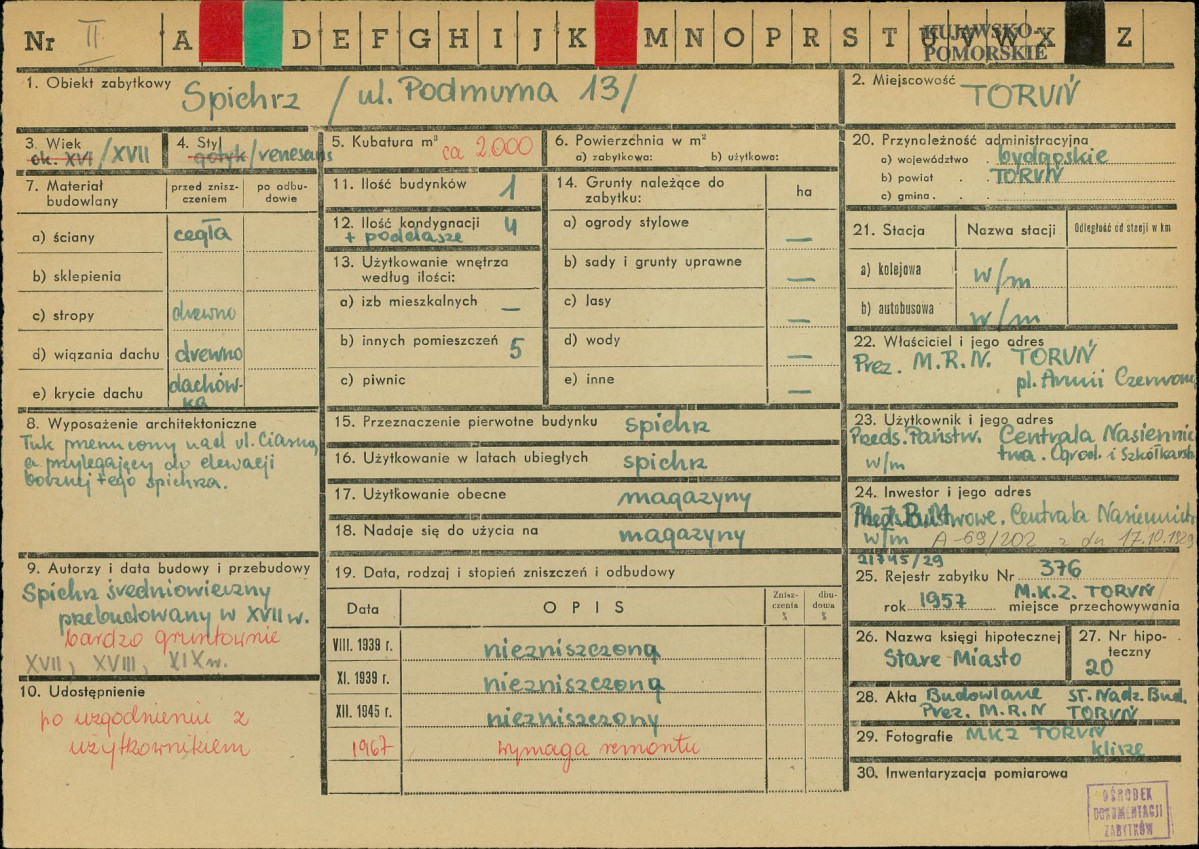 Nr II A D E F G H I J K M N O P R S T U V W X Z
KUJAWSKO-
POMORSKIE
1. Obiekt zabytkowy Spichrz / ul. Podmurna 13/
2. Miejscowość TORUŃ
3. Wiek
ok. XVI / XVII
4. Styl
gotyk / renesans
5. Kubatura m³ ca 2.000
6. Powierzchnia w m²
a) zabytkowa: b) użytkowa:
7. Materiał budowlany
przed zniszczeniem
po odbudowie
a) ściany cegła
b) sklepienia
c) stropy drewno
d) wiązania dachu drewno
e) krycie dachu dachów-
ka
8. Wyposażenie architektoniczne
Łuk przerzucony nad ul. Ciasną
a przylegający do elewacji
bocznej tego spichrza.
9. Autorzy i data budowy i przebudowy
Spichrz średniowieczny
przebudowany w XVII w.
bardzo gruntownie
XVII, XVIII, XIX w.
10. Udostępnienie
po uzgodnieniu z
użytkownikiem
11. Ilość budynków 1
12. Ilość kondygnacji 4
+ poddasze
13. Użytkowanie wnętrza
według ilości:
a) izb mieszkalnych —
b) innych pomieszczeń 5
c) piwnic
14. Grunty należące do
zabytku:
ha
a) ogrody stylowe —
b) sady i grunty uprawne —
c) lasy —
d) wody —
e) inne —
15. Przeznaczenie pierwotne budynku spichrz
16. Użytkowanie w latach ubiegłych spichrz
17. Użytkowanie obecne magazyny
18. Nadaje się do użycia na magazyny
19. Data, rodzaj i stopień zniszczeń i odbudowy
Data OPIS Znisz-
czenia
% dbu-
dowa
%
VIII. 1939 r. niezniszczoną
XI. 1939 r. niezniszczoną
XII. 1945 r. niezniszczony
1967 wymaga remontu
20. Przynależność administracyjna
a) województwo bydgoskie
b) powiat TORUŃ
c) gmina
21. Stacja Nazwa stacji Odległość od stacji w km
a) kolejowa w/m
b) autobusowa w/m
22. Właściciel i jego adres
Prez. M.R.N. TORUŃ
pl. Armii Czerwonej
23. Użytkownik i jego adres
Przeds. Państw. Centrala Nasiennic
twa. Ogrod. i Szkółkarst
w/m
24. Inwestor i jego adres
Centrala Nasiennictw
w/m A-69/202 z dn 17.10.1929
21745/29
25. Rejestr zabytku Nr 376
rok 1957 M.K.Z. TORUŃ
miejsce przechowywania
26. Nazwa księgi hipotecznej
Stare Miasto
27. Nr hipo-
teczny
20
28. Akta Budowlane ST. Nadz. Bud.
Prez. M.R.N TORUŃ
29. Fotografie MKZ TORUŃ
klisze
30. Inwentaryzacja pomiarowa
OŚRODEK
DOKUMENTACJI
ZABYTKÓW